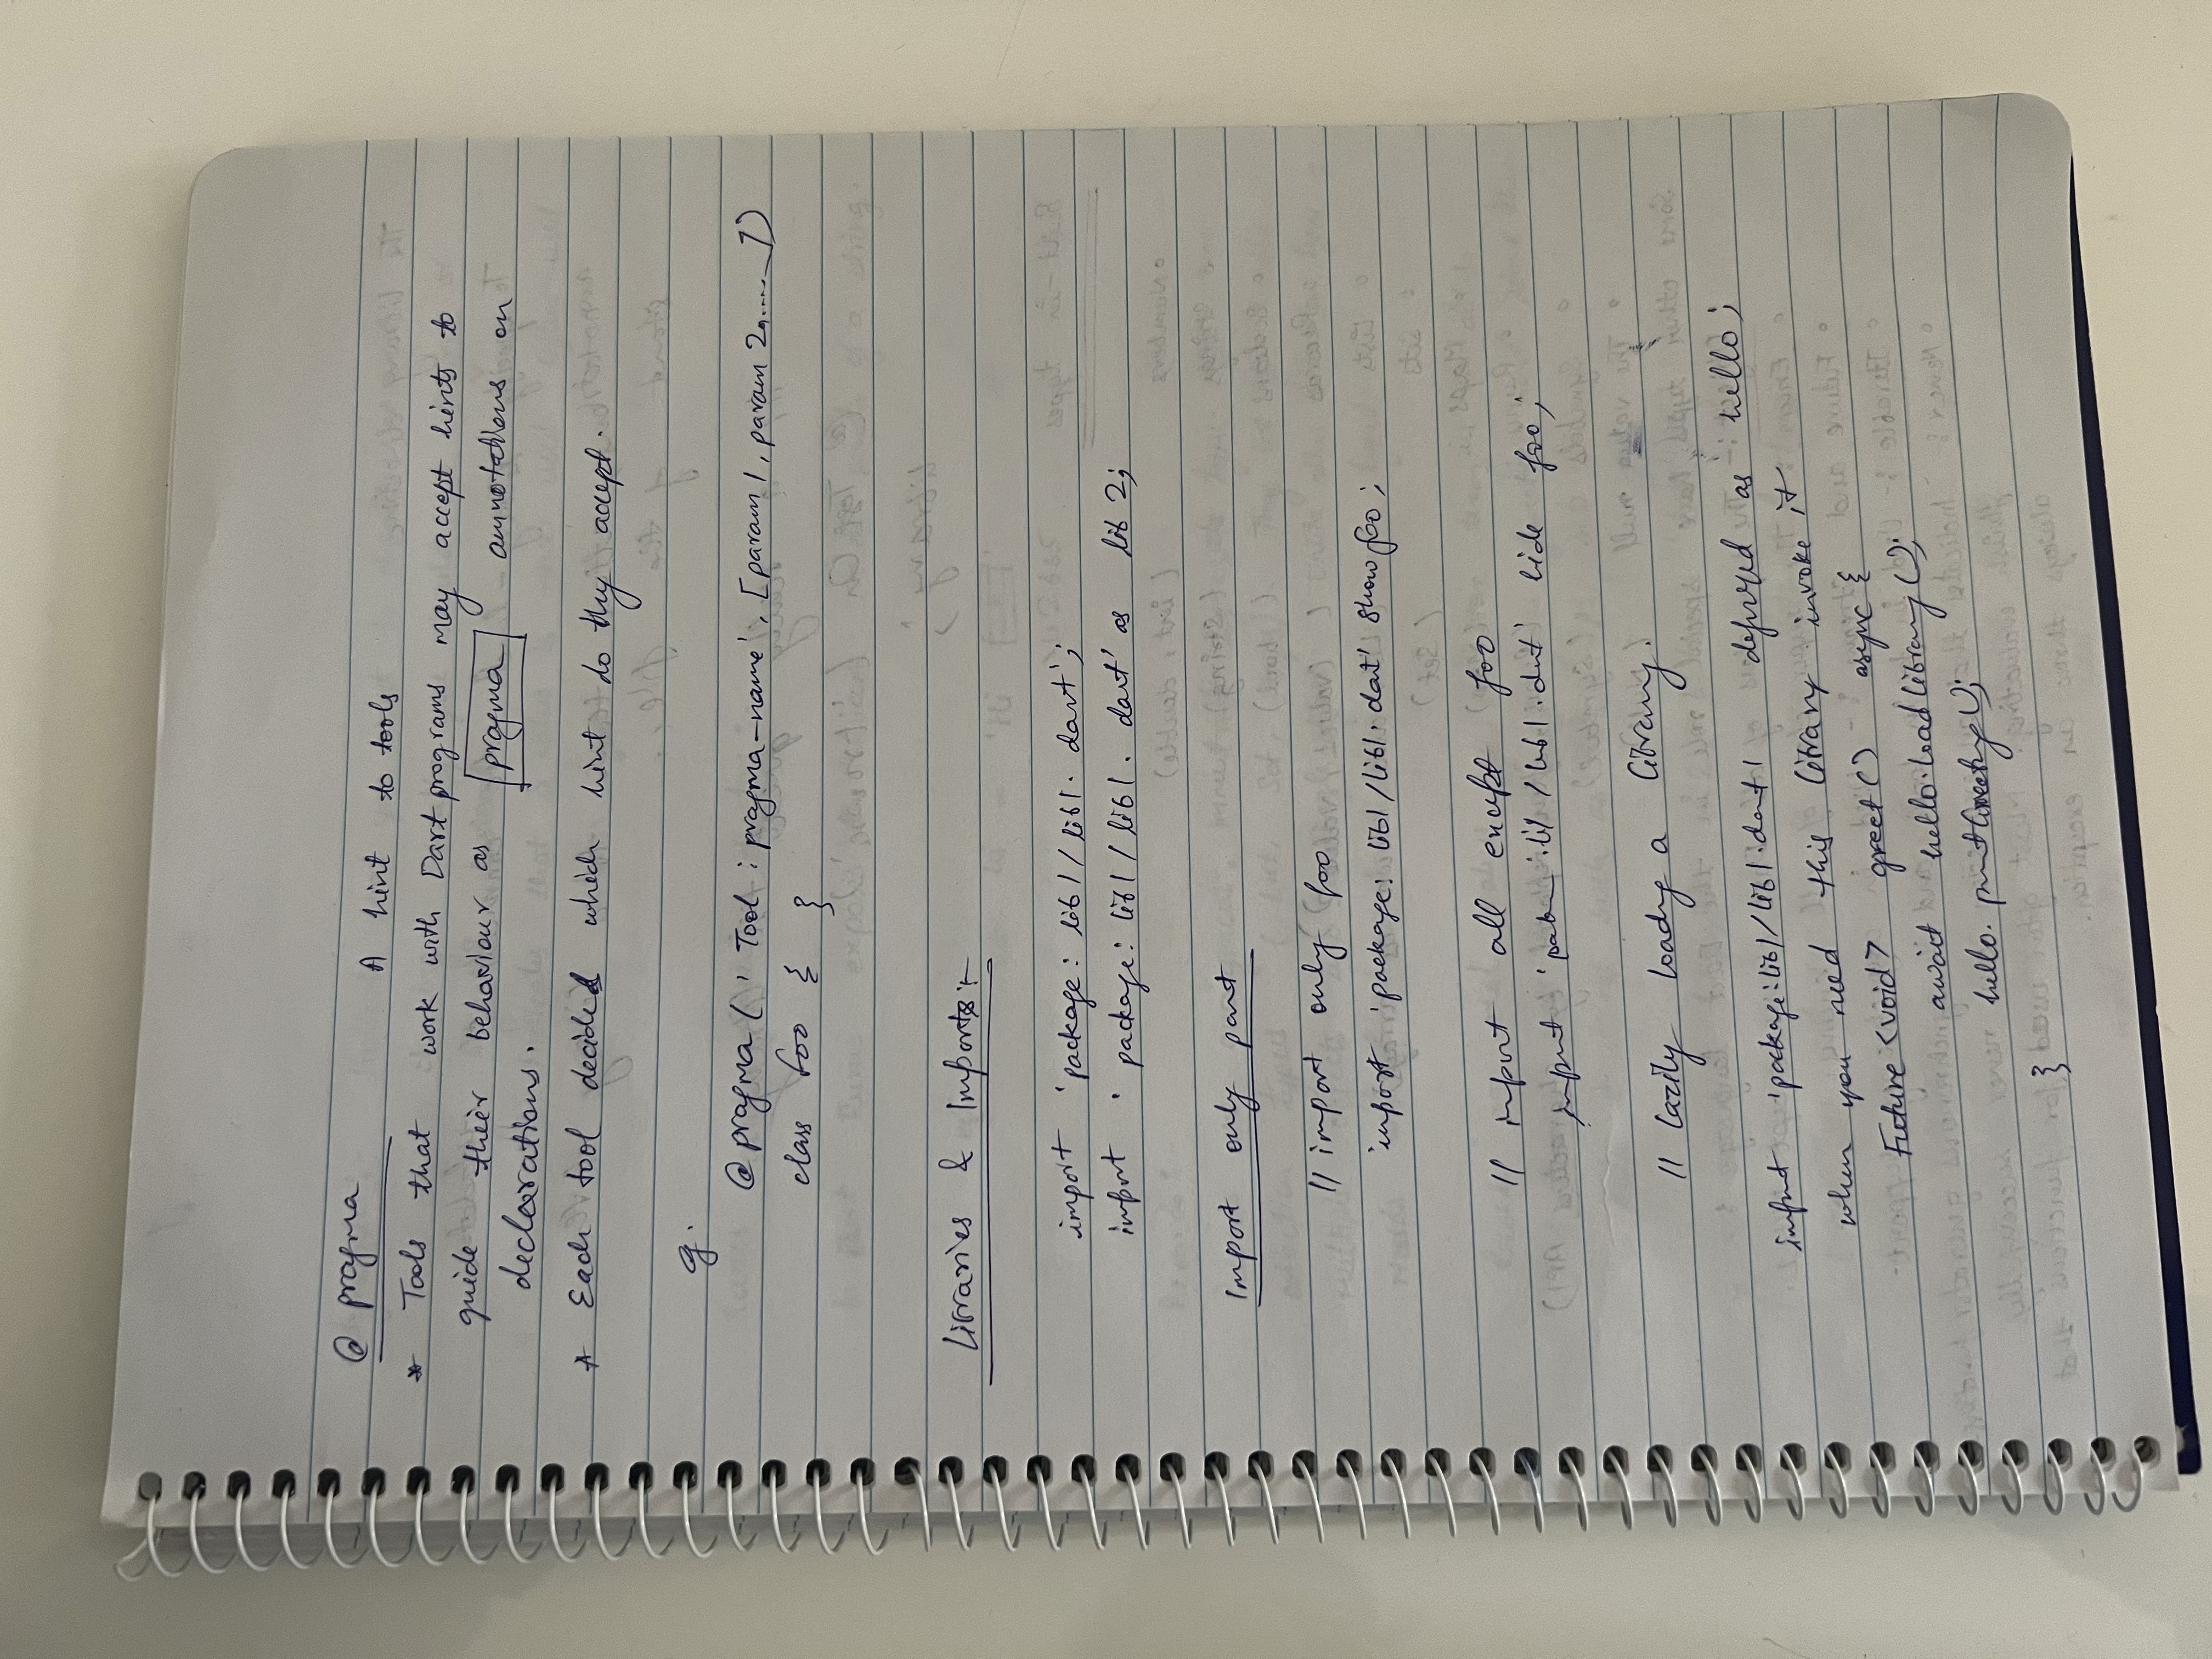 @ pragma
A hint to tools
* Tools that work with Dart programs may accept hints to
guide their behaviour as pragma annotations on
declarations.
* Each tool decides which hint do thy accept.
g.
@pragma ( ' Tool : pragma-name', [param1, param2,.....])
class foo { }
Libraries & Imports:-
import 'package: lib1/lib1. dart';
import 'package: lib1/lib1. dart' as lib2;
Import only part
// import only foo
import 'package: lib1/lib1. dart' show foo;
// import all except foo
import : lib1/lib1.dart' hide foo;
// Lazily loading a library.
import 'package:lib1/lib1.dart' deferred as hello;
when you need this library invoke it
Future <void> greet() async {
await hello.loadlibrary();
hello. printGreeting();
}